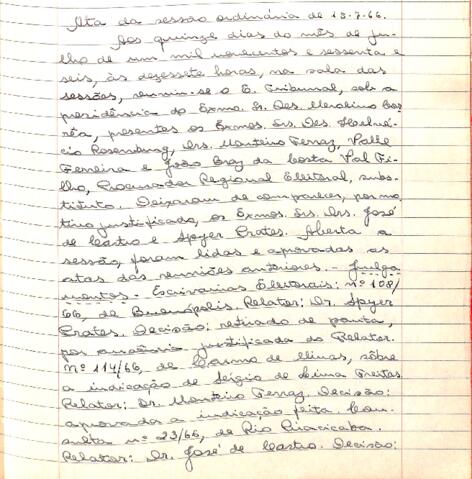 Ata da sessão ordinária de 15-7-66.
Aos quinze dias do mês de ju-
lho de um mil novecentos e sessenta e
seis, às dezessete horas, na sala das
sessões, reuniu-se o E. Tribunal, sob a
presidência do Exmo. Sr. Des. Merolino Cor-
rêa, presentes os Exmos. Srs. Des. Helvé-
cio Rosenburg, Drs. Monteiro Ferraz, Valle
Ferreira e João Braz da Costa Val Fi-
lho, Procurador Regional Eleitoral, subs-
tituto. Deixaram de comparecer, por mo-
tivo justificado, os Exmos. Srs. Drs. José
de Castro e Spyer Prates. Aberta a
sessão, foram lidas e aprovadas as
atas das reuniões anteriores. - Julga
mentos. - Escrivanias Eleitorais: nº 108/
66, de Buenópolis. Relator: Dr. Spyer
Prates. Decisão: retirado de pauta,
por ausência justificada do Relator.
Nº 114/66, de Carmo de Minas, sôbre
a indicação de Sérgio de Lima Freitas
Relator: Dr. Monteiro Ferraz. Decisão:
aprovada a indicação feita. Con-
sulta nº 23/66, de Rio Piracicaba.
Relator: Dr. José de Castro. Decisão: